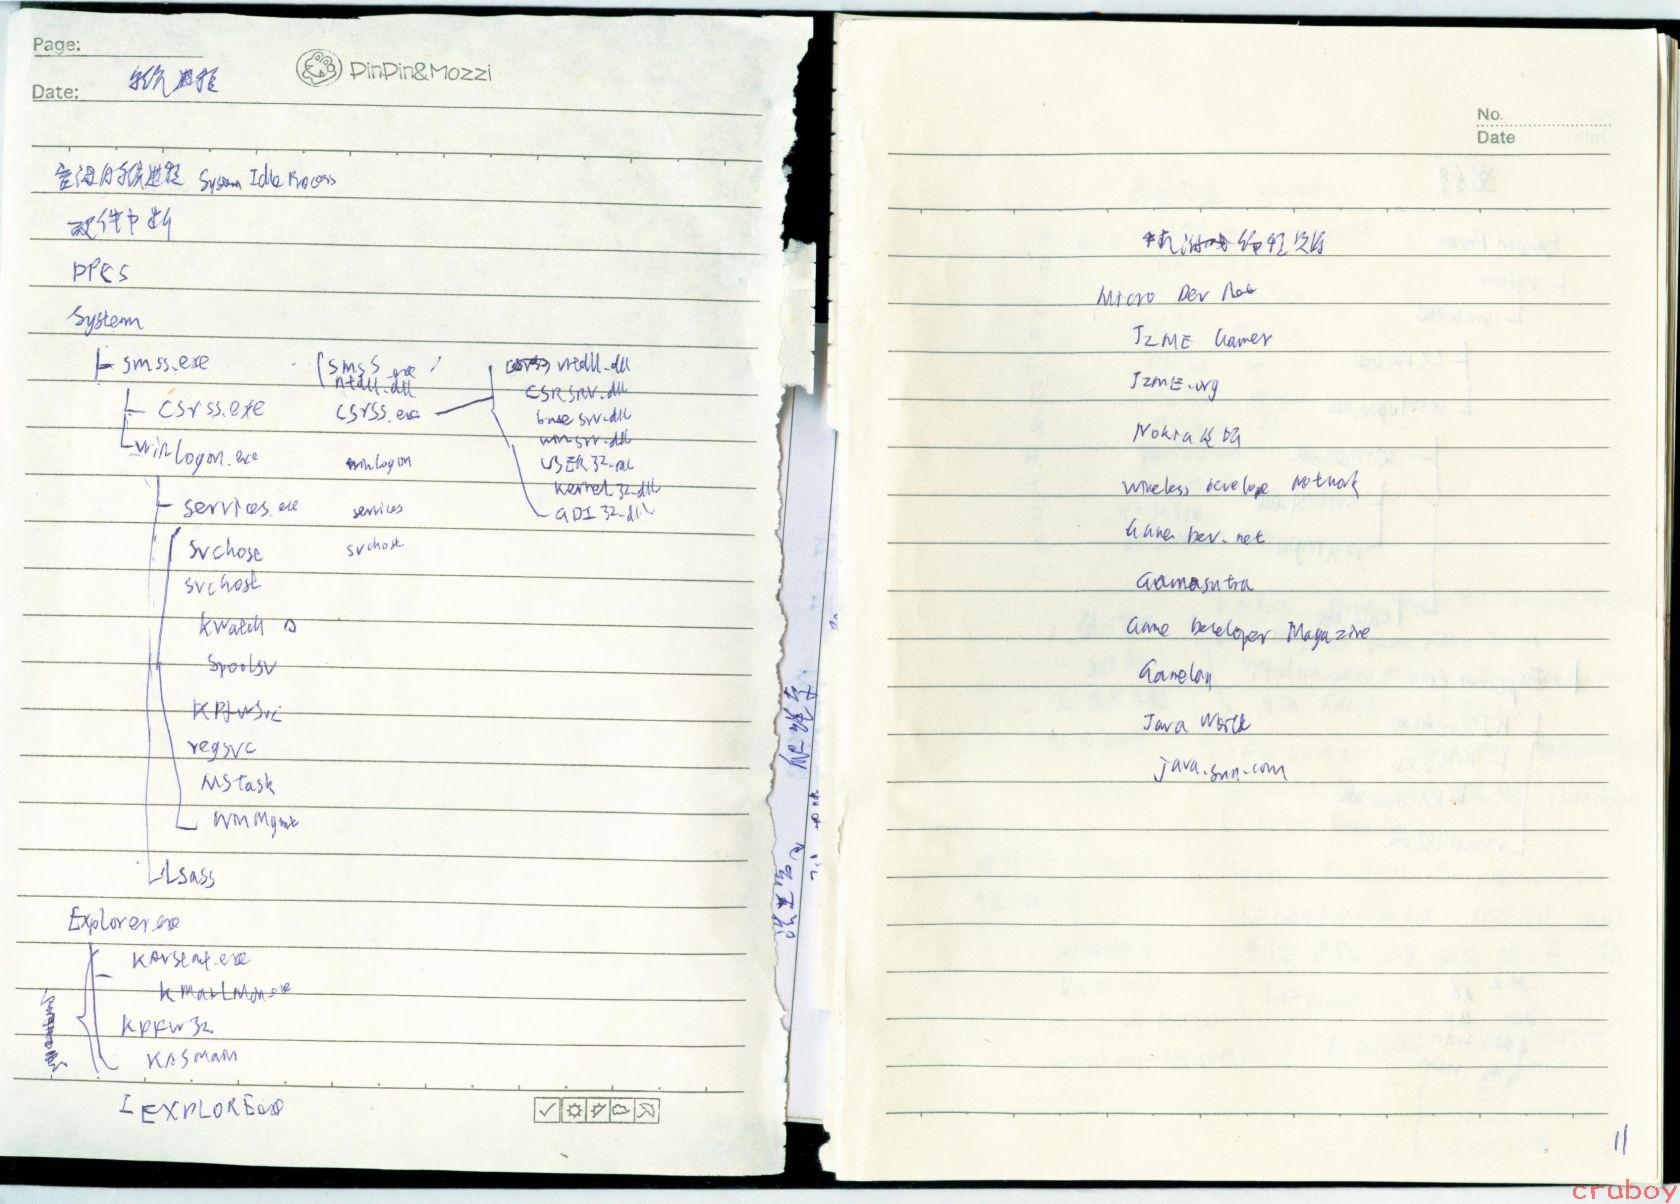 Page:
DinDin&Mozzi
Date:
System Idle Process
硬件中断
DPCS
System
smss.exe
smss.exe
ntdll.dll
ntdll.dll
csrss.exe
csrss.exe
CSRSRV.dll
basesrv.dll
winsrv.dll
winlogon.exe
winlogon
USER32.
kernel32.dll
services.exe
services
GDI32.dll
svchost
svchost
svchost
KWatch
Spoolsv
KPfwSvc
regsvc
MStask
WinMgmt
Lsass
Explorer.exe
KAVStart.exe
KMailMon
KPFW32
KASMain
IEXPLORE
No.
Date
Micro Dev Net
J2ME Gamer
J2ME.org
Nokia
Wireless Develope Network
Game Dev.net
Gamasutra
Game Developer Magazine
Gamelan
Java World
java.sun.com
11
cruboy